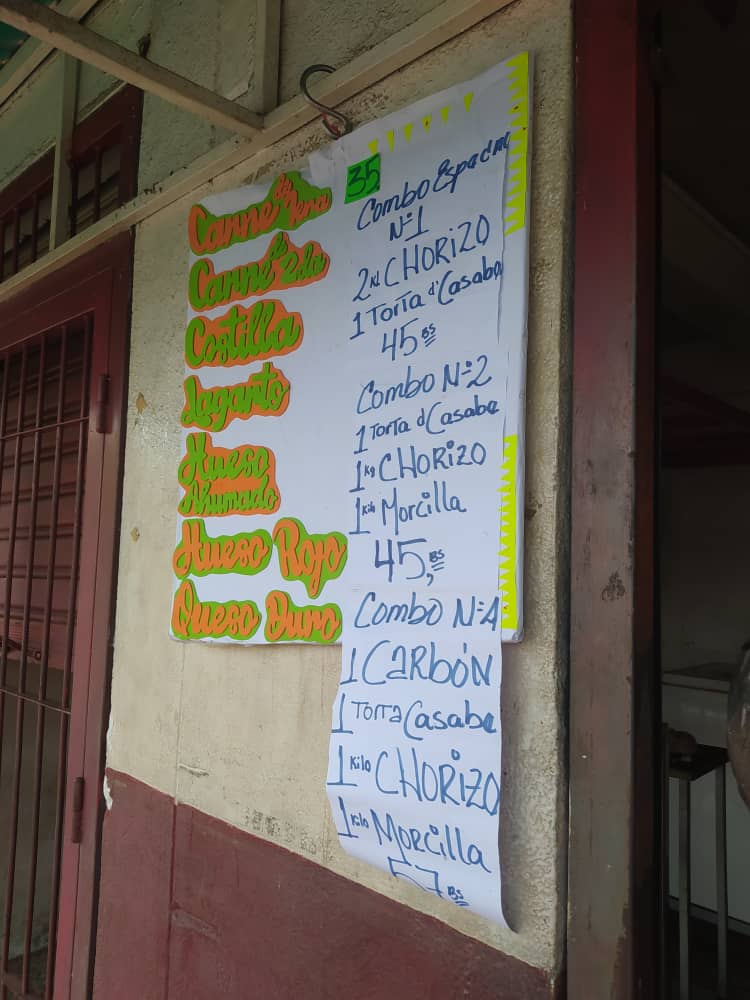 Carne de 1era
35
Carne de 2da
Costilla
Lagarto
Hueso
Ahumado
Hueso Rojo
Queso Duro
Combo Especial
Nº1
2 Kl CHORIZO
1 Torta d' Casabe
45 Bs
Combo Nº2
1 Torta d' Casabe
1 Kg CHORIZO
1 Kilo Morcilla
45, Bs
Combo Nº4
1 CARBÓN
1 Torta Casabe
1 Kilo CHORIZO
1 Kilo Morcilla
57 Bs